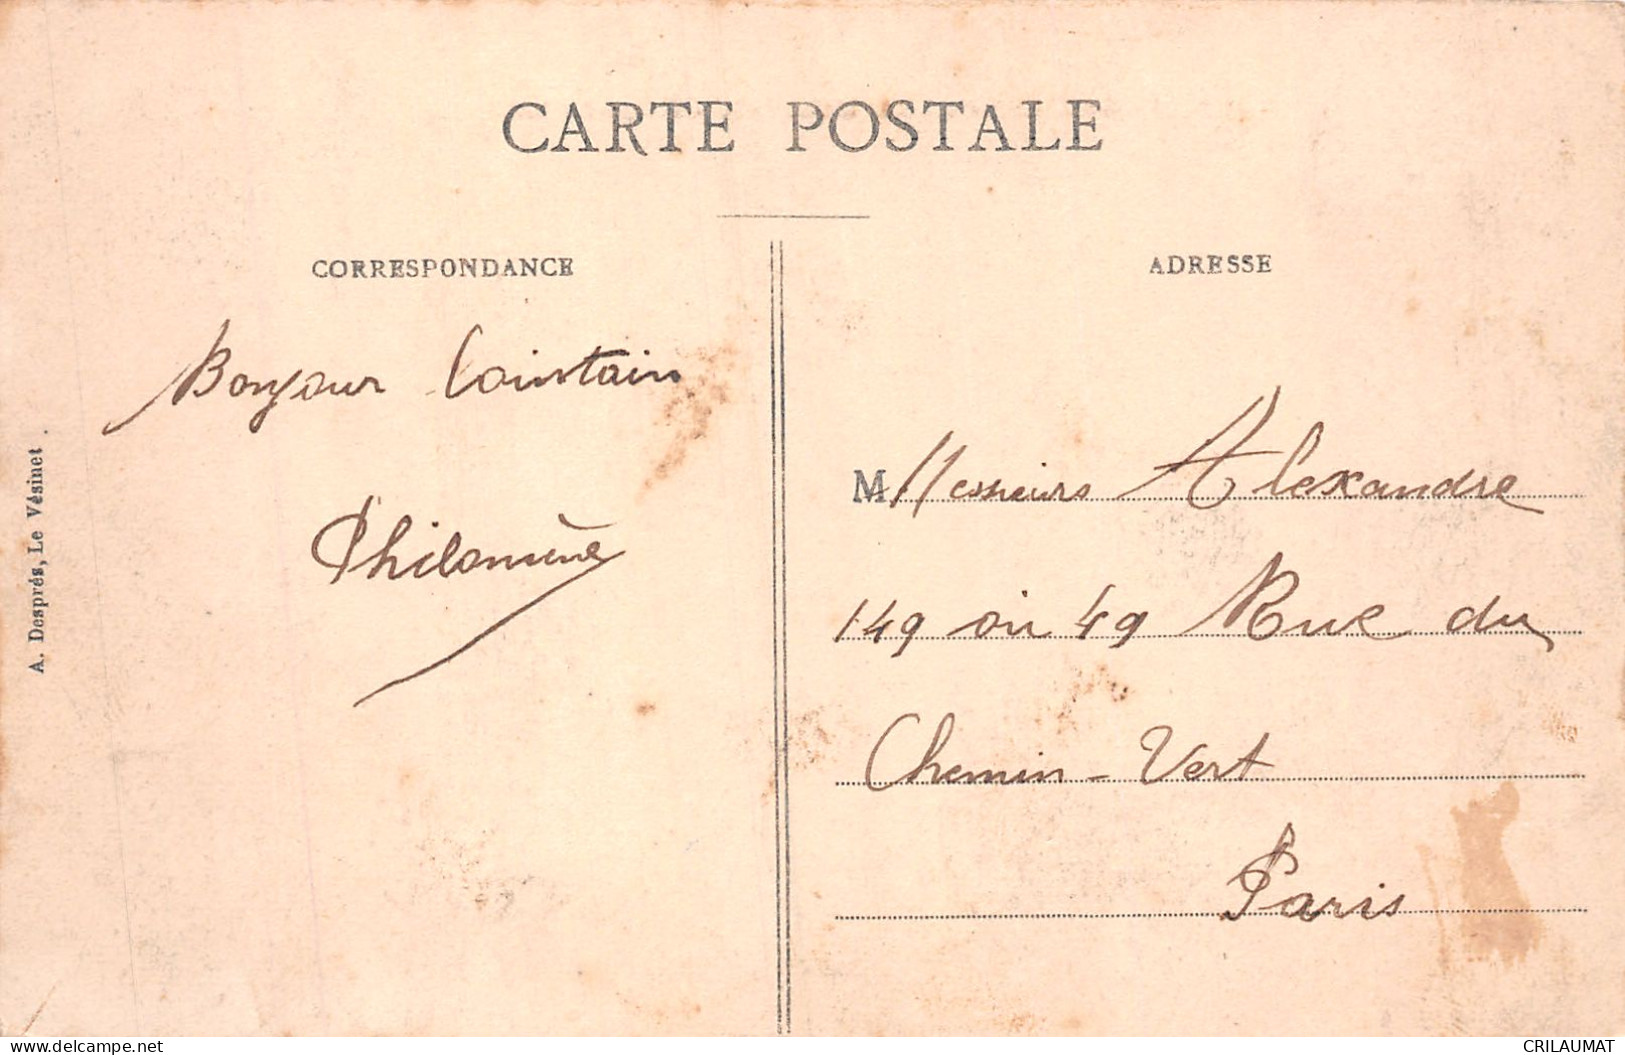 CARTE POSTALE
CORRESPONDANCE
Bonjour Lointain
Philomène
A. Després, Le Vésinet
ADRESSE
M Messieurs Alexandre
149 ou 49 Rue du
Chemin-Vert
Paris
www.delcampe.net
CRILAUMAT